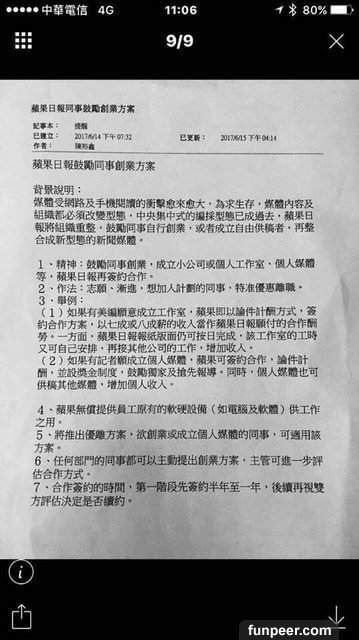 中華電信 4G 11:06 80%
9/9
蘋果日報同事鼓勵創業方案
記事本： 提醒
已建立： 2017/6/14 下午 07:32 已更新： 2017/6/15 下午 04:14
作者： 陳裕鑫
蘋果日報鼓勵同事創業方案
背景說明：
媒體受網路及手機閱讀的衝擊愈來愈大，為求生存，媒體內容及
組織都必須改變型態，中央集中式的編採型態已成過去，蘋果日
報將組織重整，鼓勵同事自行創業，或者成立自由供稿者，再整
合成新型態的新聞媒體。
1、精神：鼓勵同事創業，成立小公司或個人工作室、個人媒體
等，蘋果日報再簽約合作。
2、作法：志願、漸進，想加入計劃的同事，特准優惠離職。
3、舉例：
（1）如果有美編願意成立工作室，蘋果即以論件計酬方式，簽
約合作方案，以七成或八成薪的收入當作蘋果日報願付的合作酬
勞。一方面，蘋果日報報紙版面仍可按日完成，該工作室的工時
又可自己安排，再接其他公司的工作，增加收入。
（2）如果有記者願成立個人媒體，蘋果可簽約合作，論件計
酬，並設獎金制度，鼓勵獨家及搶先報導。同時，個人媒體也可
供稿其他媒體，增加個人收入。
4、蘋果無償提供員工原有的軟硬設備（如電腦及軟體）供工作
之用。
5、將推出優離方案，欲創業或成立個人媒體的同事，可適用該
方案。
6、任何部門的同事都可以主動提出創業方案，主管可進一步評
估合作方式。
7、合作簽約的時間，第一階段先簽約半年至一年，後續再視雙
方評估決定是否續約。
funpeer.com